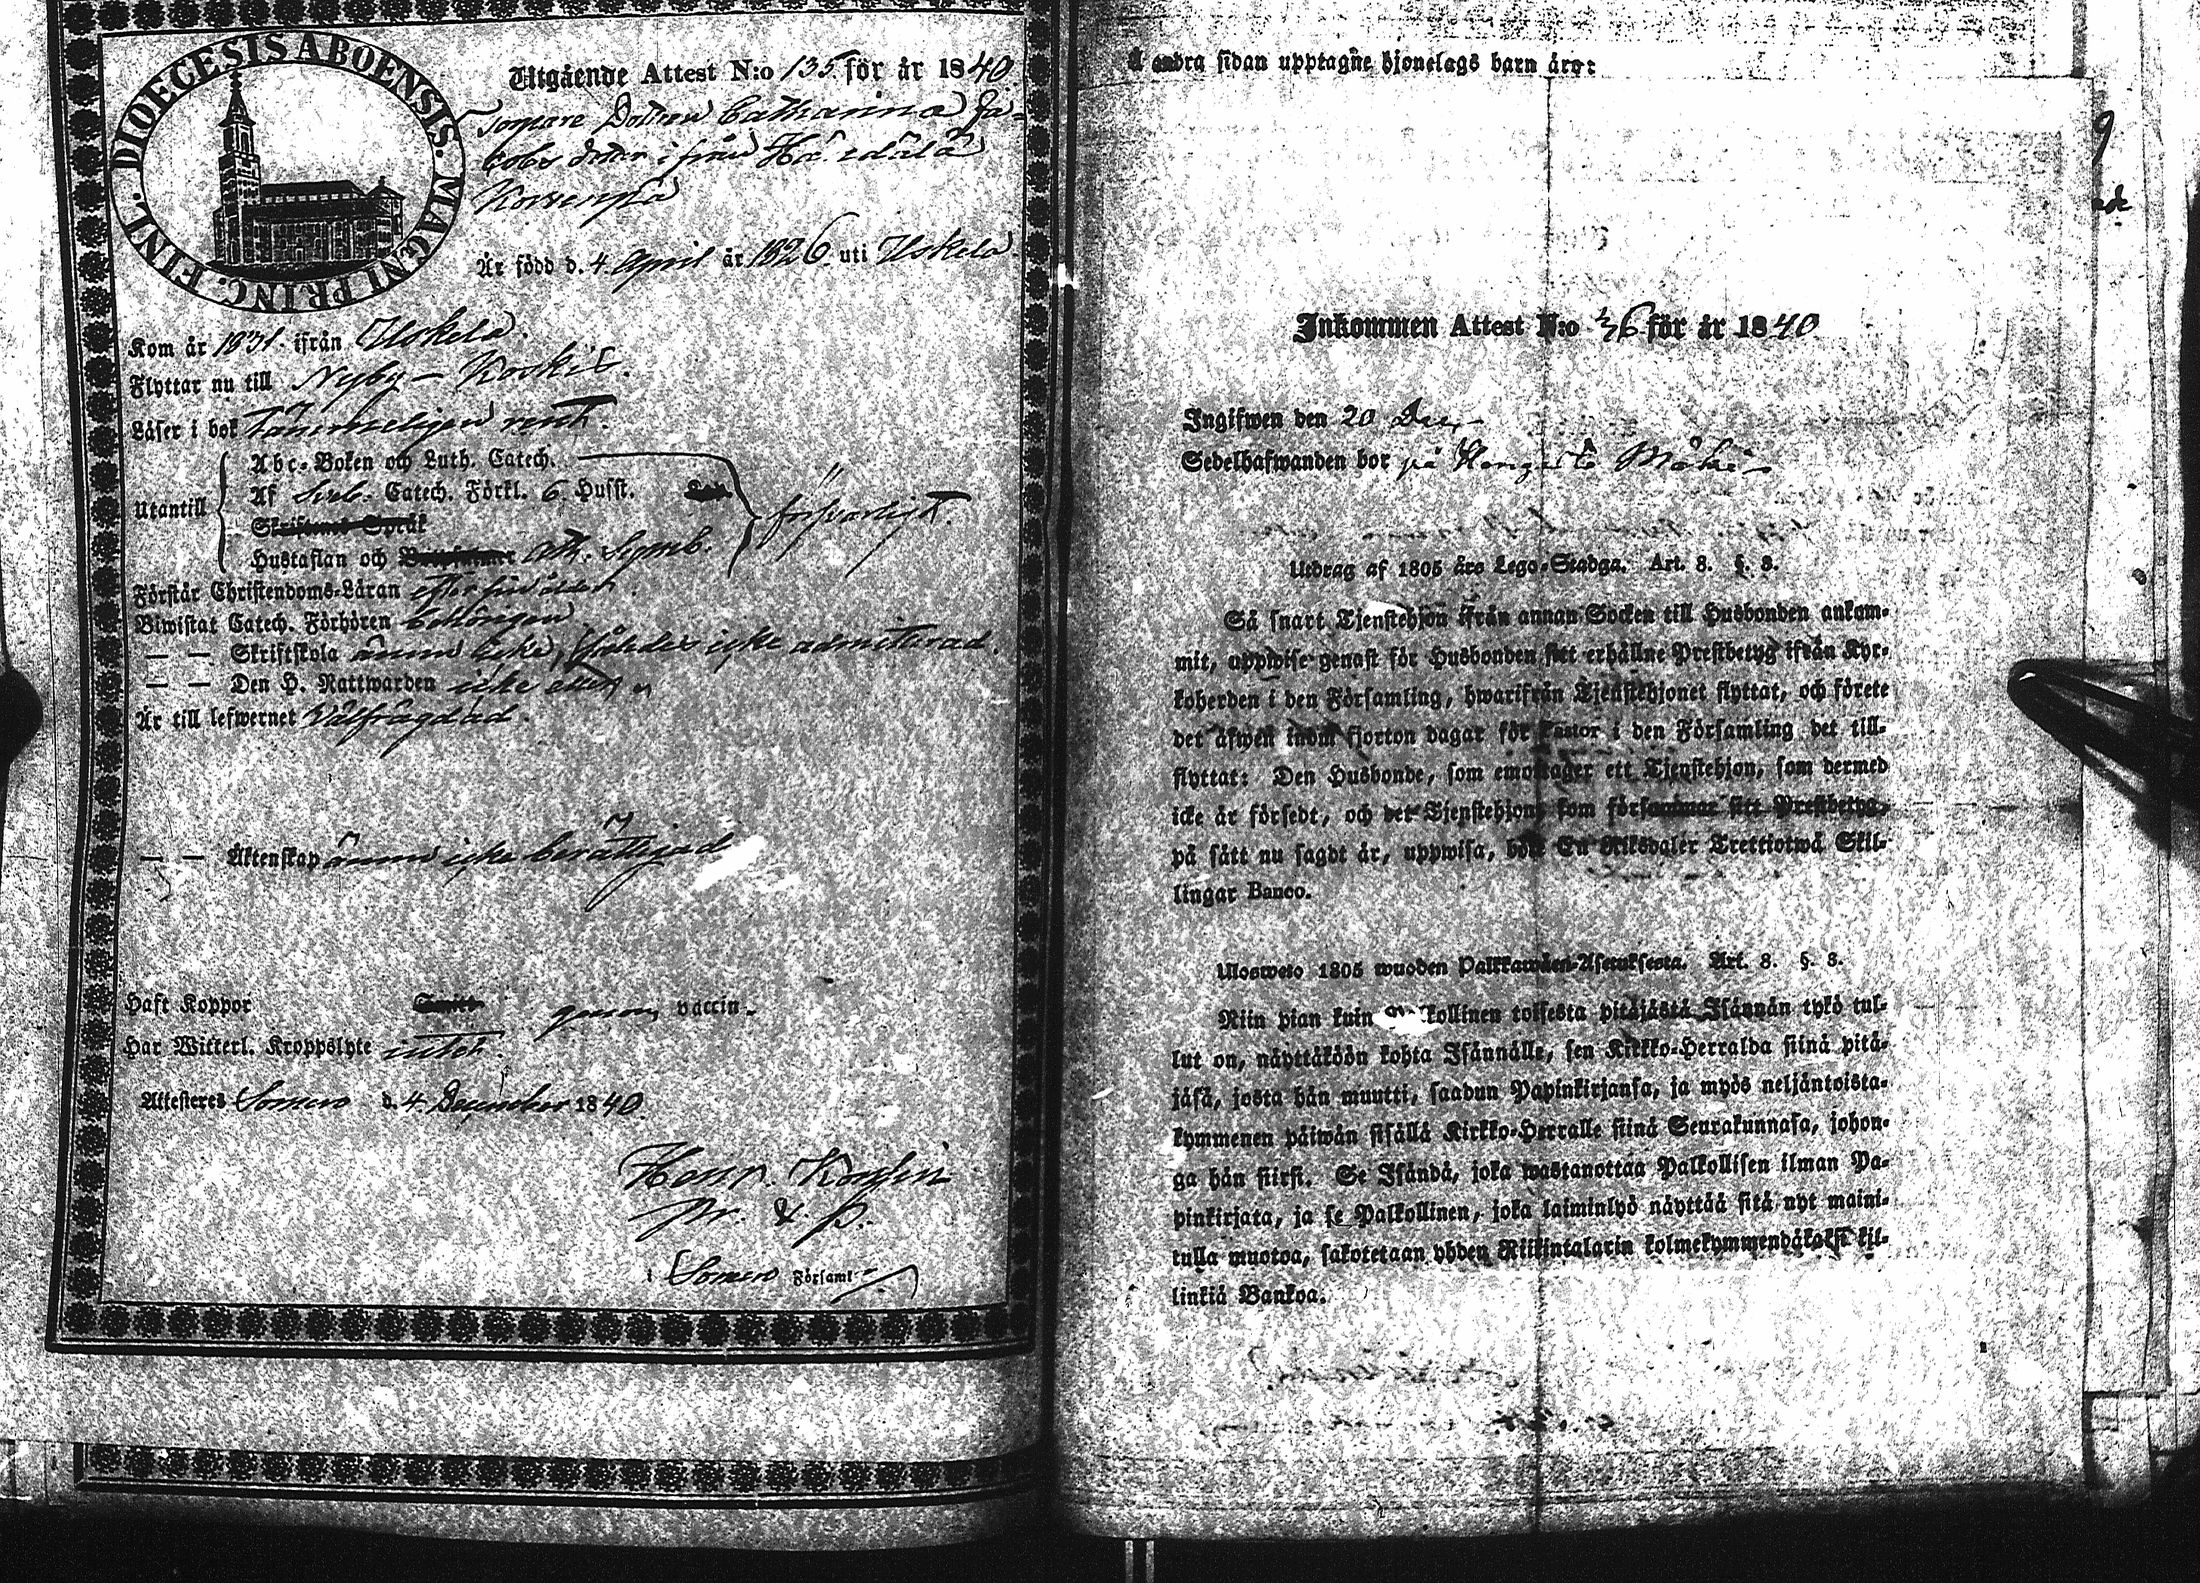 DIOECESIS ABOENSIS. MAGNI PRINC. FINL.
Utgående Attest N:o 135 för år 1840
Torpare Dottren Catharina Ja-
cobs dotter ifrån
Är född d. 4 April år 1826 uti Uskela
Kom år 1831 ifrån Uskela.
Flyttar nu till Nyby - Koskis.
Läser i bok rent.
Utantill
Abc-Boken och Luth. Catech.
Af Sveb. Catech. Förkl. 6 Husst.
Skriftenes Språk
Hustaflan och Ath. Symb.
försvarligt.
Förstår Christendoms-Läran efter sin ålder.
Biwistat Catech. Förhören behörigen
— — Skriftskola ännu icke, således icke admitterad.
— — Den H. Nattwarden icke eller
Är till lefwernet Välfrägdad.
— — Äktenskap ännu icke berättigad
Haft Koppor genom vaccin.
Har Witterl. Kroppslyte intet.
Attesteras Somero d. 4 December 1840
Henr.
i Somero Församl.
Å andra sidan upptagne hjonelags barn äro:
Inkommen Attest N:o 36 för år 1840
Ingifwen den 20 Dec.
Sedelhafwanden bor på
Utdrag af 1805 års Lego-Stadga. Art. 8. §. 3.
Så snart Tjenstehjon ifrån annan Socken till Husbonden ankom-
mit, uppwise genast för Husbonden sitt erhållne Prestbetyg ifrån Kyr-
koherden i den Församling, hwarifrån Tjenstehjonet flyttat, och förete
det äfwen inom fjorton dagar för Pastor i den Församling det till-
flyttat: Den Husbonde, som emottager ett Tjenstehjon, som dermed
icke är försedt, och det Tjenstehjon, som försummar sitt Prestbetyg,
på sätt nu sagdt är, uppwisa, böte En Riksdaler Trettiotwå Skil-
lingar Banco.
Ulosweto 1805 wuoden Palkkawäen-Asetuksesta. Art. 8. §. 3.
Niin pian kuin Palkollinen toisesta pitäjästä Isännän tykö tul-
lut on, näyttäköön kohta Isännälle, sen Kirkko-Herralda siinä pitä-
jäsä, josta hän muutti, saadun Papinkirjansa, ja myös neljäntoista-
kymmenen päiwän sisällä Kirkko-Herralle siinä Seurakunnasa, johon-
ga hän siirsi. Se Isändä, joka wastanottaa Palkollisen ilman Pa-
pinkirjata, ja se Palkollinen, joka laiminlyö näyttää sitä nyt maini-
tulla muotoa, sakotetaan yhden Riikintalarin kolmekymmendäkaksi kil-
linkiä Bankoa.